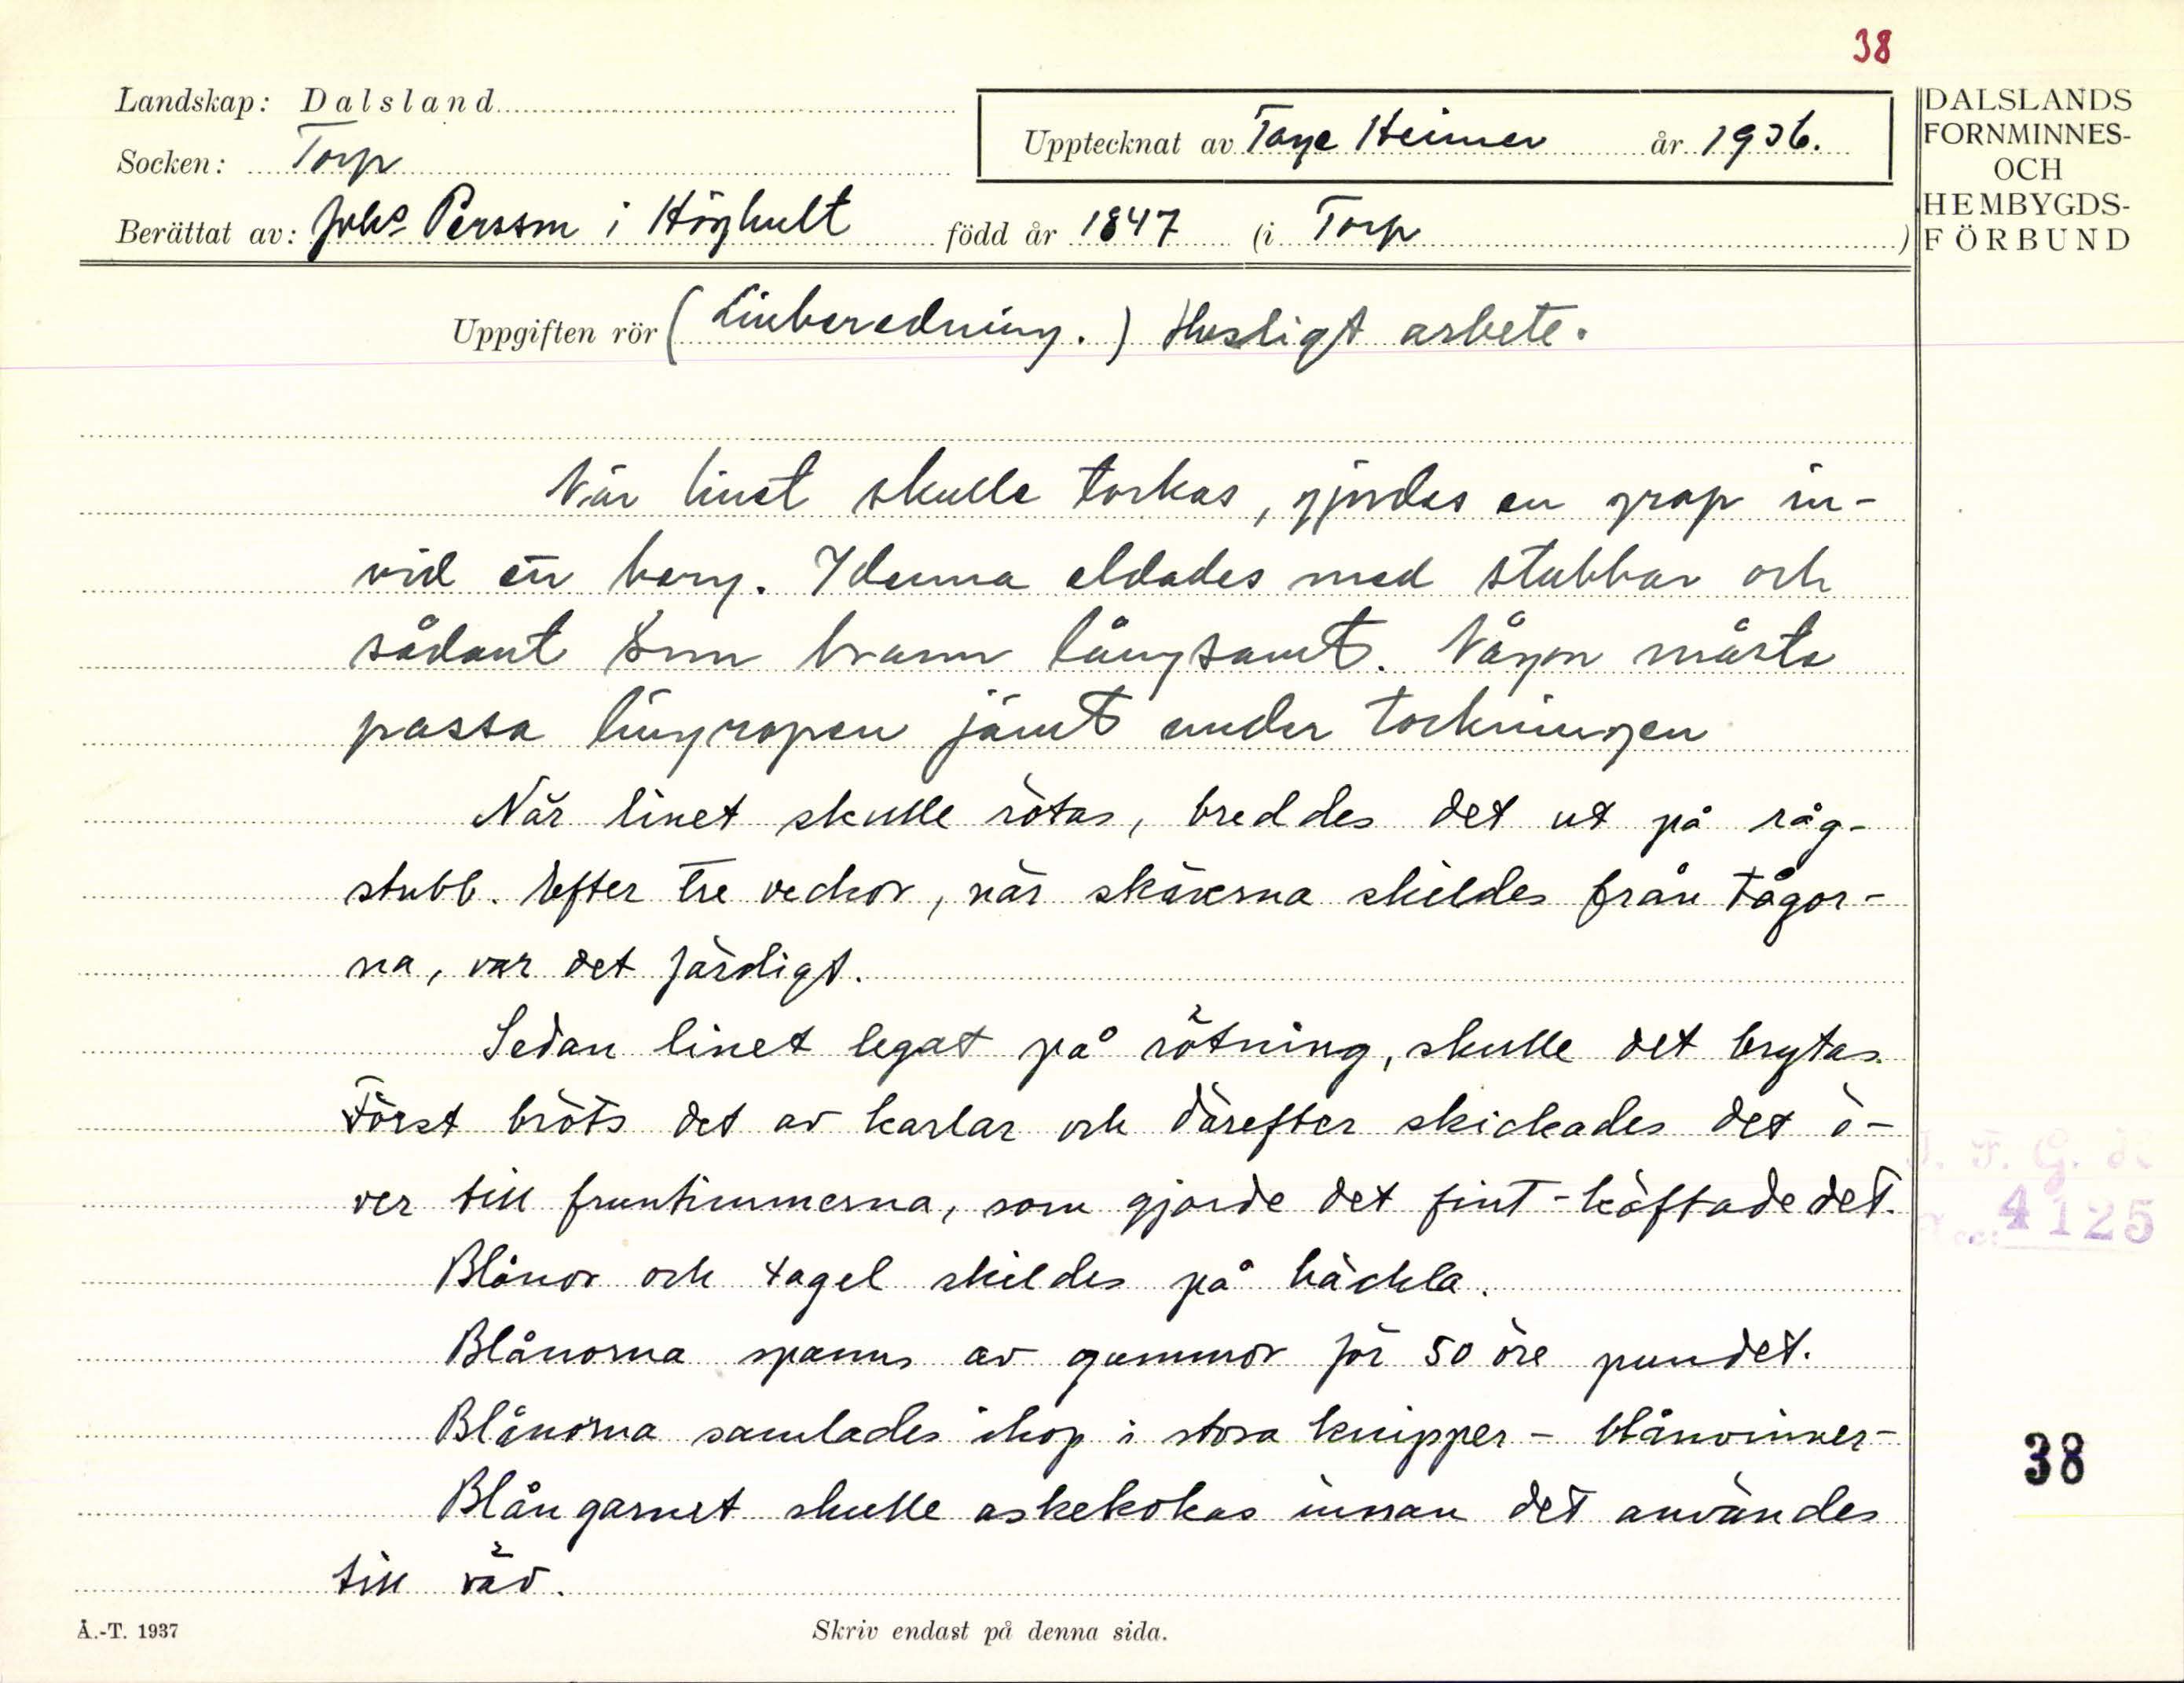 38
Landskap: Dalsland
Socken: Torp
Upptecknat av Tage Heimer år 1936.
Berättat av: Johs Persson i Höghult född år 1847 (i Torp)
DALSLANDS
FORNMINNES-
OCH
HEMBYGDS-
FÖRBUND
Uppgiften rör (Linberedning.) Husligt arbete.
När linet skulle torkas, gjordes en grop in-
vid en berg. I denna eldades med stubbar och
sådant som brann långsamt. Någon måste
passa lingropen jämt under torkningen
När linet skulle rötas, breddes det ut på råg-
stubb. Efter tre veckor, när skäverna skildes från tågor-
na, var det färdigt.
Sedan linet legat på rötning, skulle det brytas.
Först bröts det av karlar och därefter skickades det ö-
ver till fruntimmerna, som gjorde det fint - käftade det.
Blånor och tagel skildes på häckla.
Blånorna spanns av gummor för 50 öre pundet.
Blånorna samlades ihop i stora knipper - blånvinner -
Blångarnet skulle askekokas innan det användes
till väv.
4125
38
Å.-T. 1937
Skriv endast på denna sida.